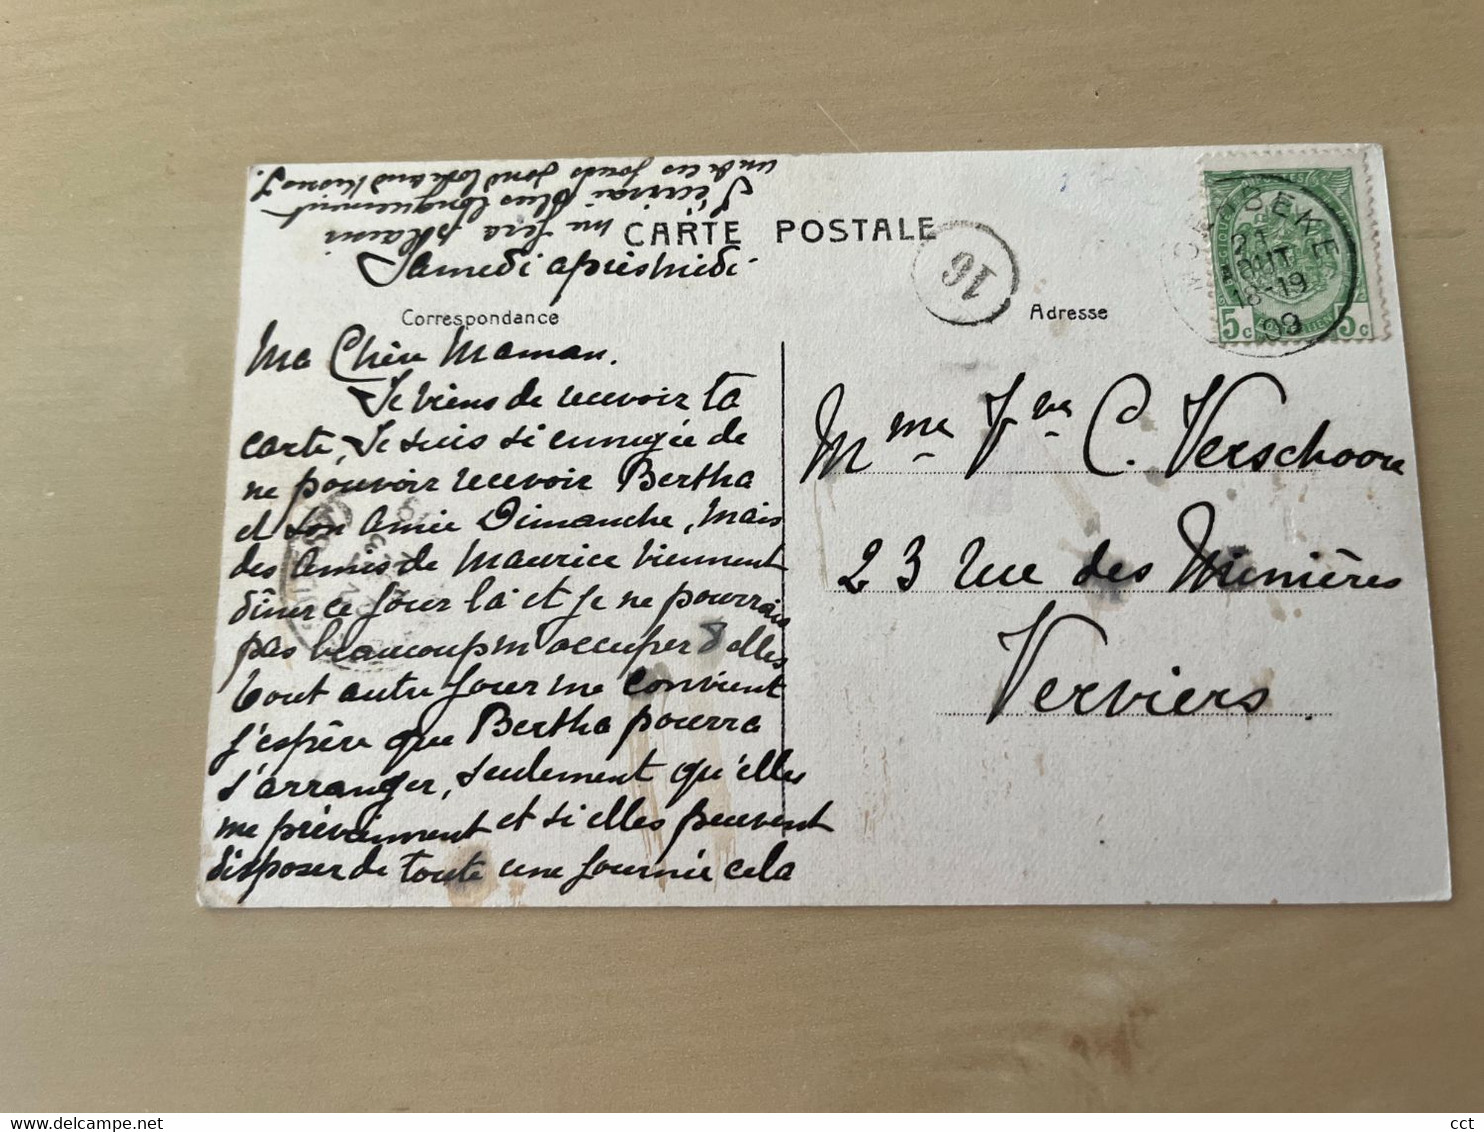 CARTE POSTALE
Samedi aprèsmidi.
Correspondance
Ma Chère Maman.
Je viens de recevoir ta
carte, Je suis si ennuyée de
ne pouvoir recevoir Bertha
et son Amie Dimanche, Mais
des Amis de Maurice viennent
dîner ce jour là et je ne pourrais
pas beaucoup m'occuper d'elles
tout autre jour me convient
j'espère que Bertha pourra
s'arranger, seulement qu'elles
me préviennent et si elles peuvent
disposer de toute une journée cela
me fera plaisir
J'écrirai plus longuement
un de ces jours
16
Adresse
21
AOUT
18-19
09
5c 5c
Mme Vve C. Verschoore
23 rue des Minières
Verviers.
cct